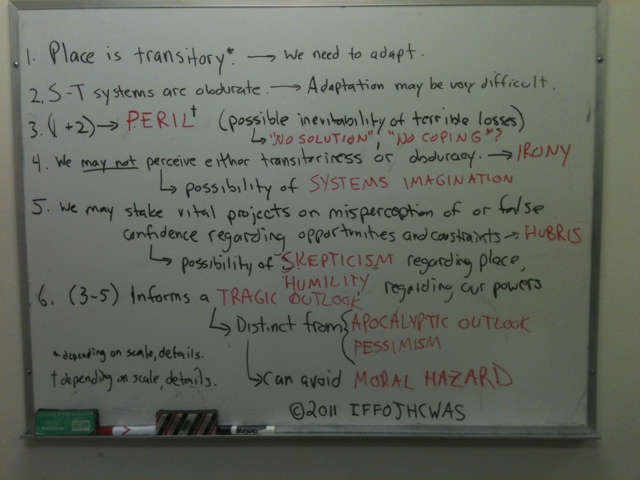 1. Place is transitory*. → We need to adapt.
2. S-T systems are obdurate. → Adaptation may be very difficult.
3. (1+2) → PERIL† (possible inevitability of terrible losses)
↳ "NO SOLUTION", "NO COPING"*?
4. We may not perceive either transitoriness or obduracy. → IRONY
↳ possibility of SYSTEMS IMAGINATION
5. We may stake vital projects on misperception of or false
confidence regarding opportunities and constraints → HUBRIS
↳ possibility of SKEPTICISM regarding place,
HUMILITY regarding our powers
6. (3-5) Informs a TRAGIC OUTLOOK
↳ Distinct from { APOCALYPTIC OUTLOOK
PESSIMISM
* depending on scale, details.
† depending on scale, details.
↳ Can avoid MORAL HAZARD
©2011 IFFOJHCWAS